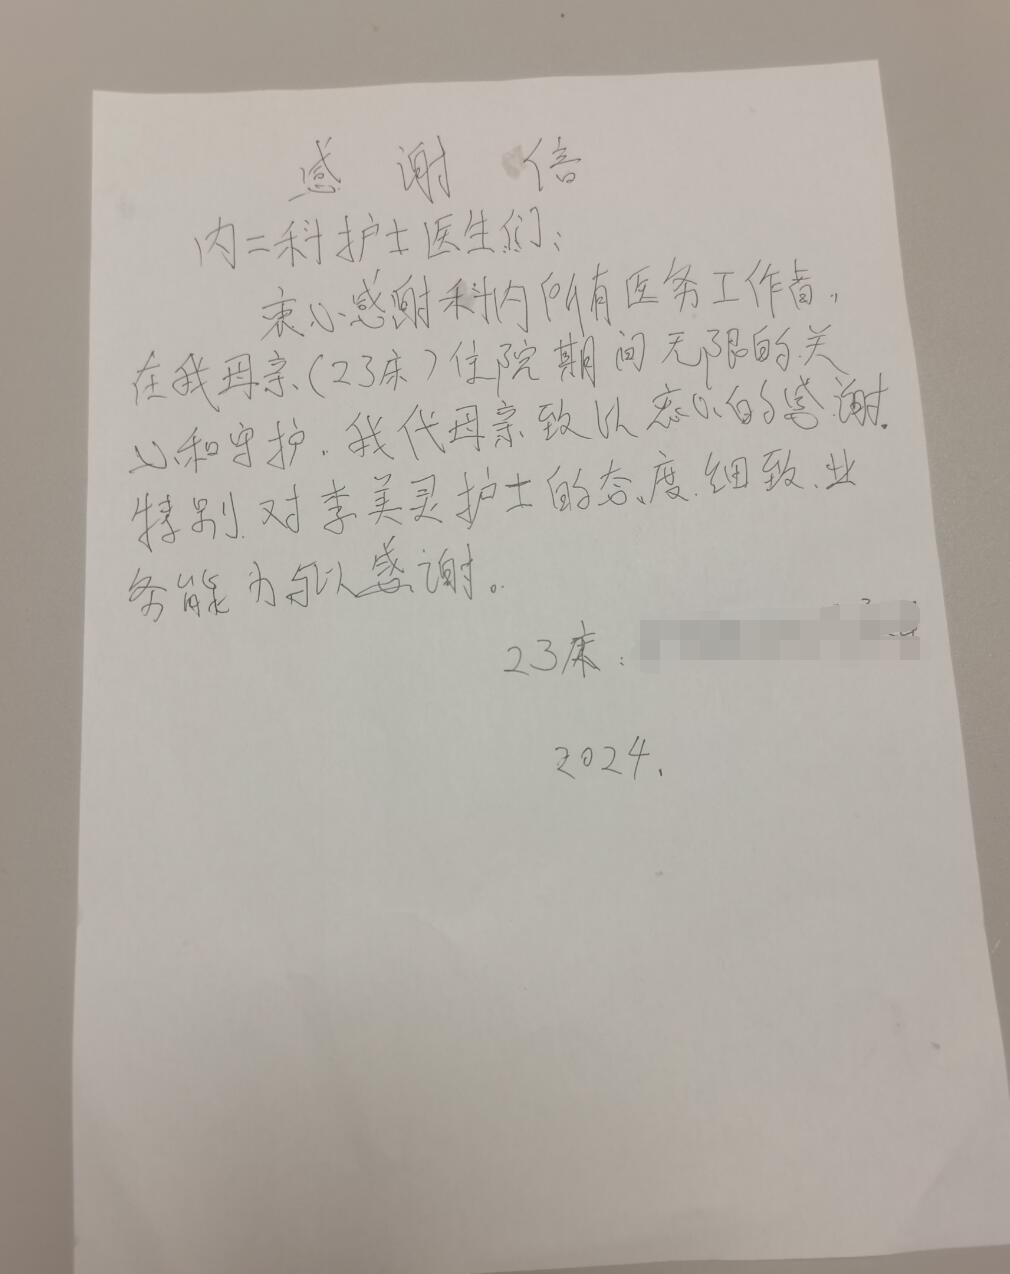 感谢信
内二科护士医生们:
衷心感谢科内所有医务工作者,
在我母亲(23床)住院期间无限的关
心和守护.我代母亲致以衷心的感谢.
特别对李美灵护士的态度.细致.业
务能力与以感谢。
23床:
2024.